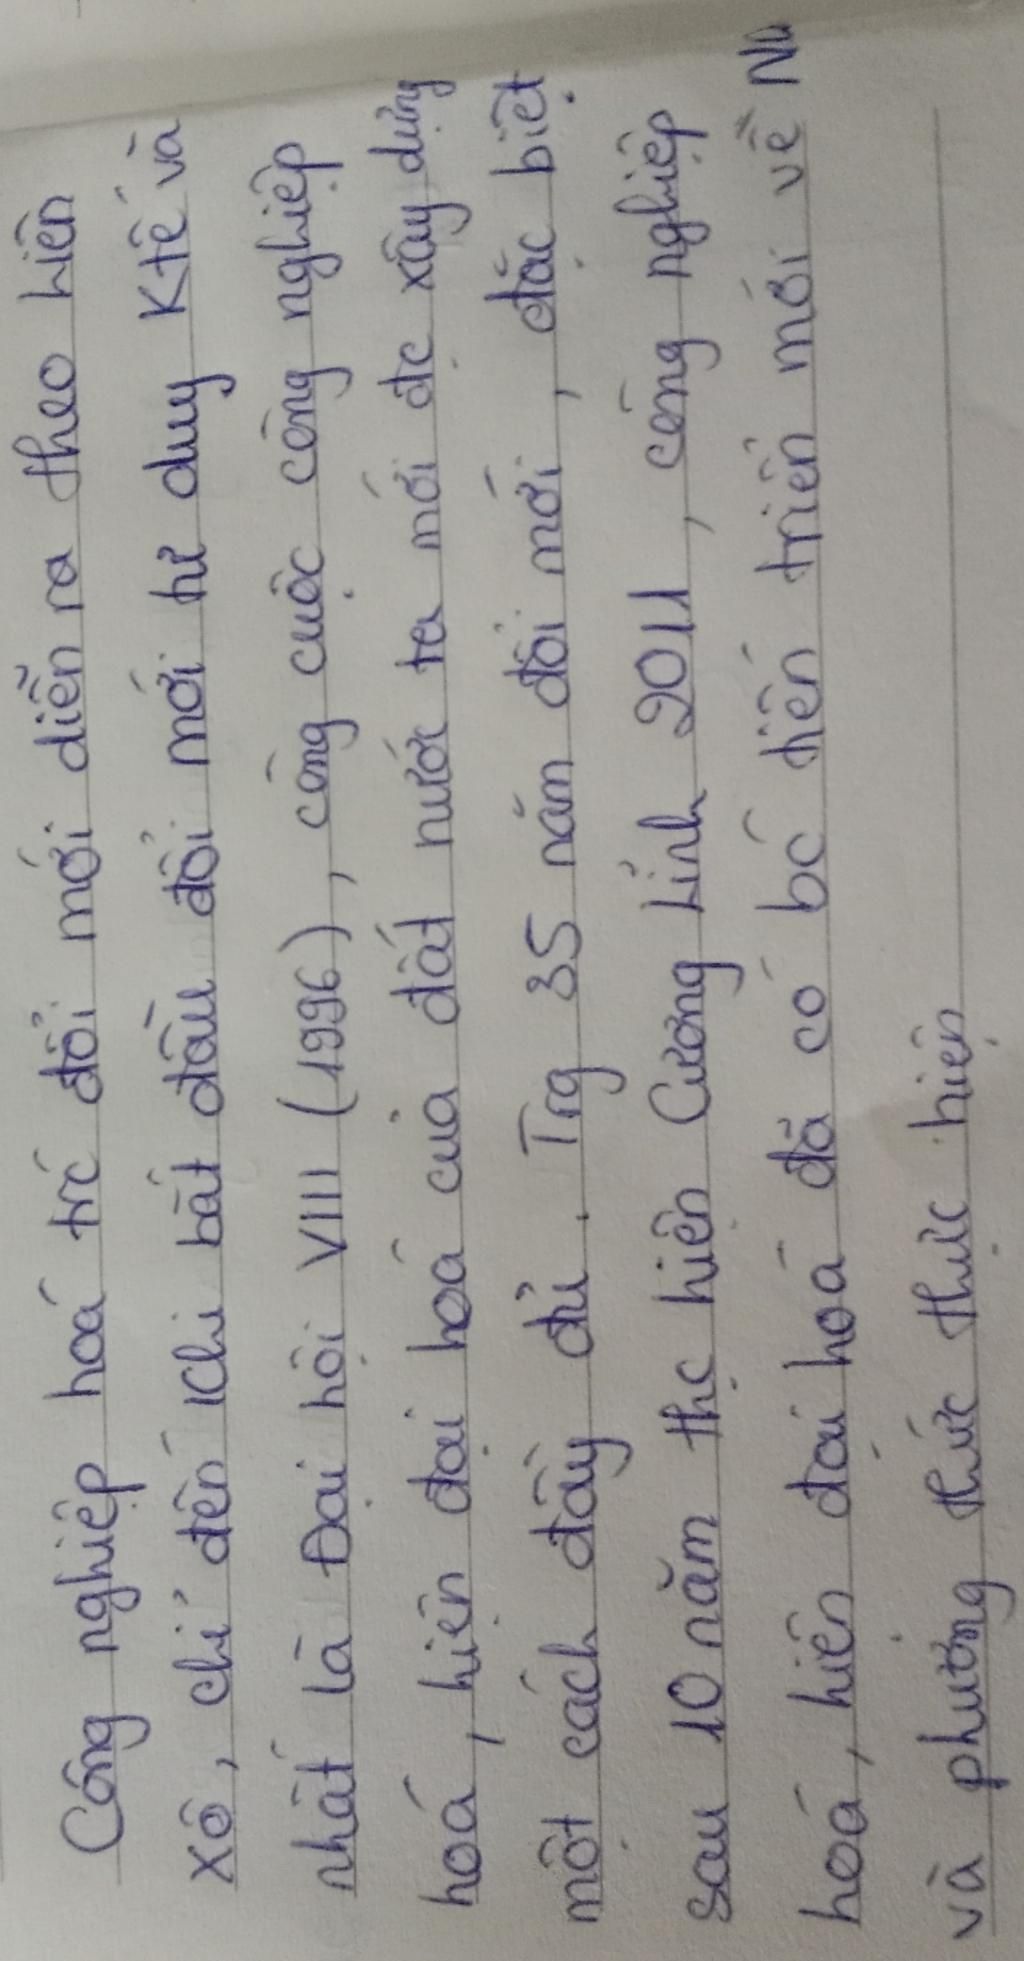 Công nghiệp hoá trc đổi mới diễn ra theo Liên
Xô, chỉ đến khi bắt đầu đổi mới tư duy Ktế và
nhất là Đại hội VIII (1996), công cuộc công nghiệp
hoá, hiện đại hoá của đất nước ta mới đc xây dựng
một cách đầy đủ. Trg 35 năm đổi mới, đặc biệt
sau 10 năm thực hiện Cương lĩnh 2011, công nghiệp
hoá, hiện đại hoá đã có bc tiến triển mới về
và phương thức thực hiện